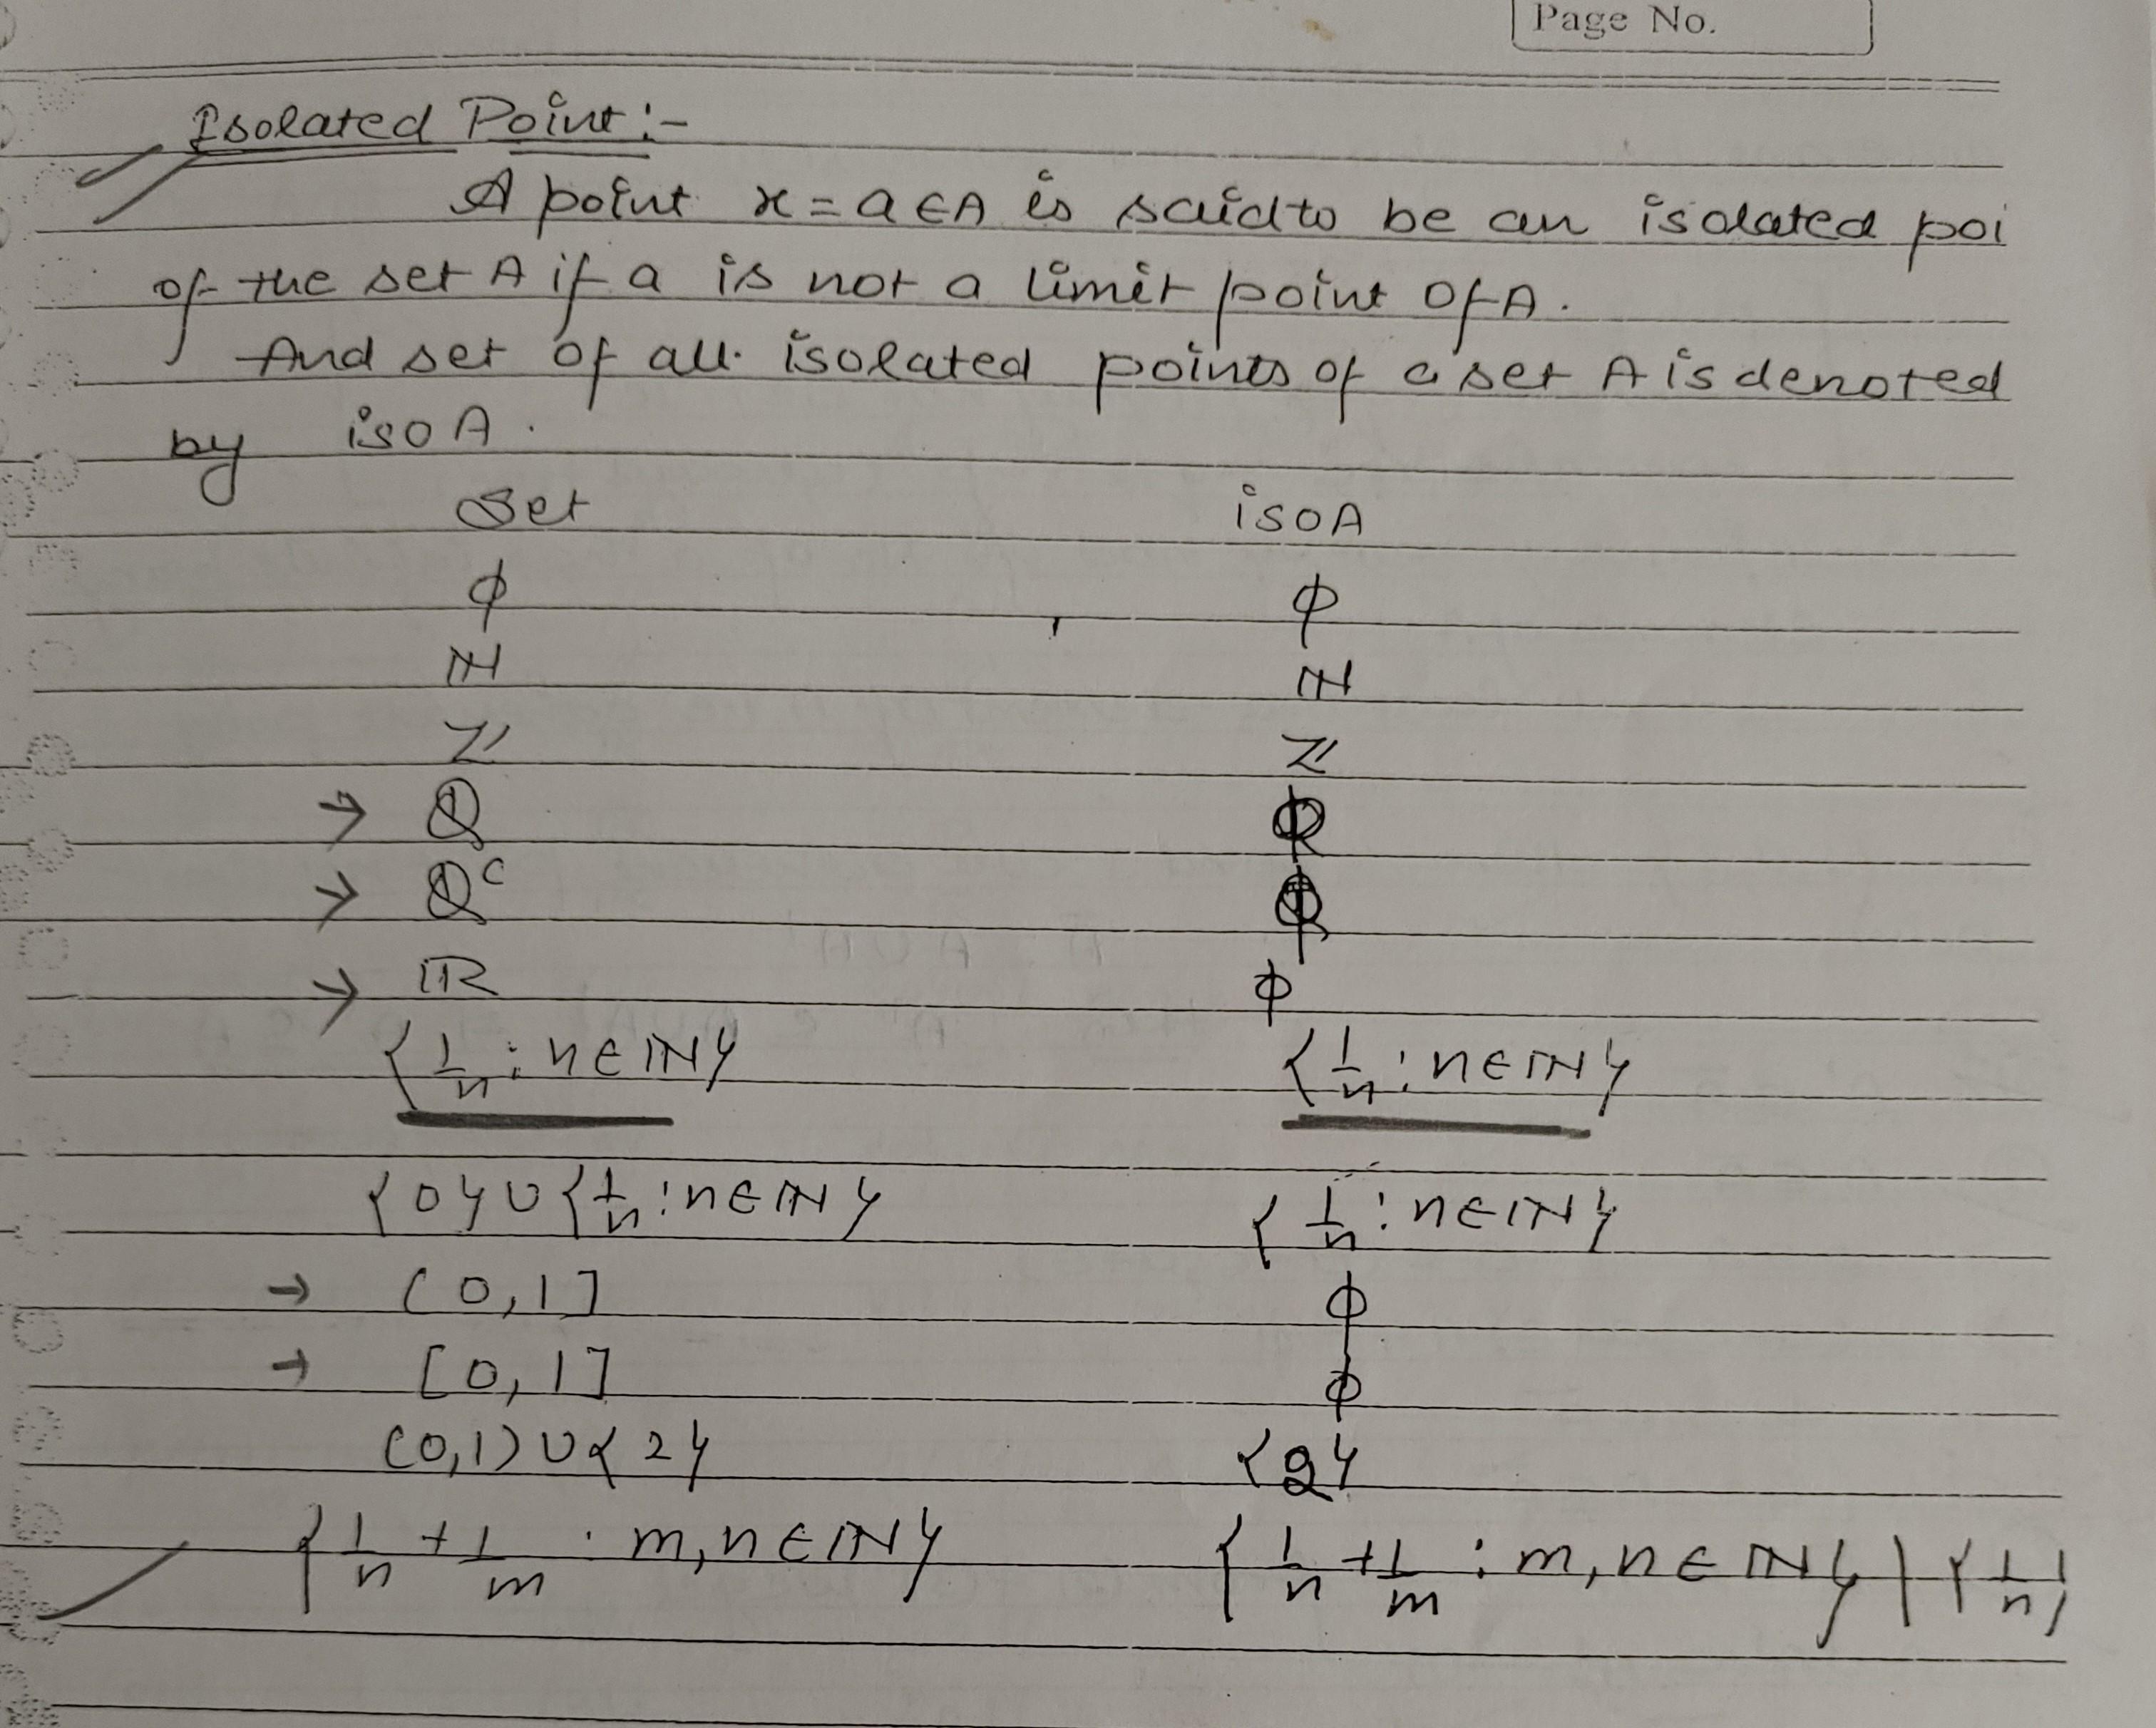 Page No.
Isolated Point :-
A point x = a ∈ A is said to be an isolated poi
of the set A if a is not a limit point of A.
And set of all isolated points of a set A is denoted
by iso A.
Set iso A
ϕ ϕ
ℕ ℕ
ℤ ℤ
→ ℚ ϕ
→ ℚᶜ ϕ
→ ℝ ϕ
{1/n : n ∈ ℕ} {1/n : n ∈ ℕ}
{0} ∪ {1/n : n ∈ ℕ} {1/n : n ∈ ℕ}
→ (0, 1] ϕ
→ [0, 1] ϕ
(0,1) ∪ {2} {2}
{1/n + 1/m : m, n ∈ ℕ} {1/n + 1/m : m, n ∈ ℕ} \ {1/n